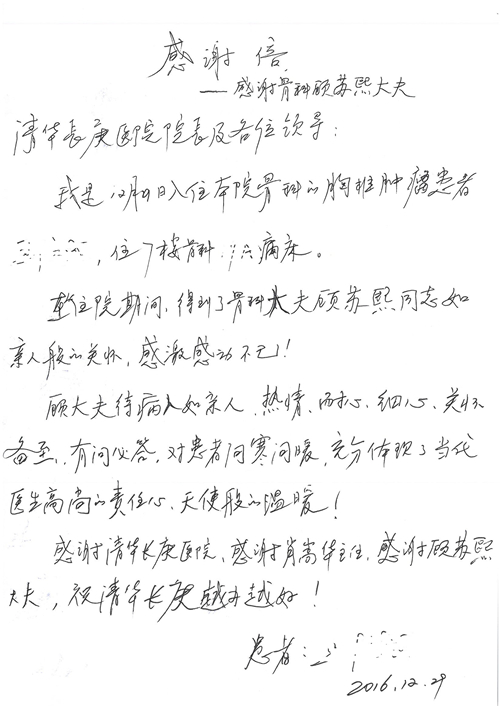 感谢信
——感谢骨科顾苏熙大夫
清华长庚医院院长及各位领导：
我是12月9日入住本院骨科的胸椎肿瘤患者
，住7楼骨科 病床。
整住院期间，得到了骨科大夫顾苏熙同志如
亲人般的关怀，感激感动不已！
顾大夫待病人如亲人、热情、耐心、细心、关怀
备至、有问必答，对患者问寒问暖，充分体现了当代
医生高尚的责任心、天使般的温暖！
感谢清华长庚医院、感谢肖嵩华主任、感谢顾苏熙
大夫，祝清华长庚越办越好！
患者：
2016.12.29